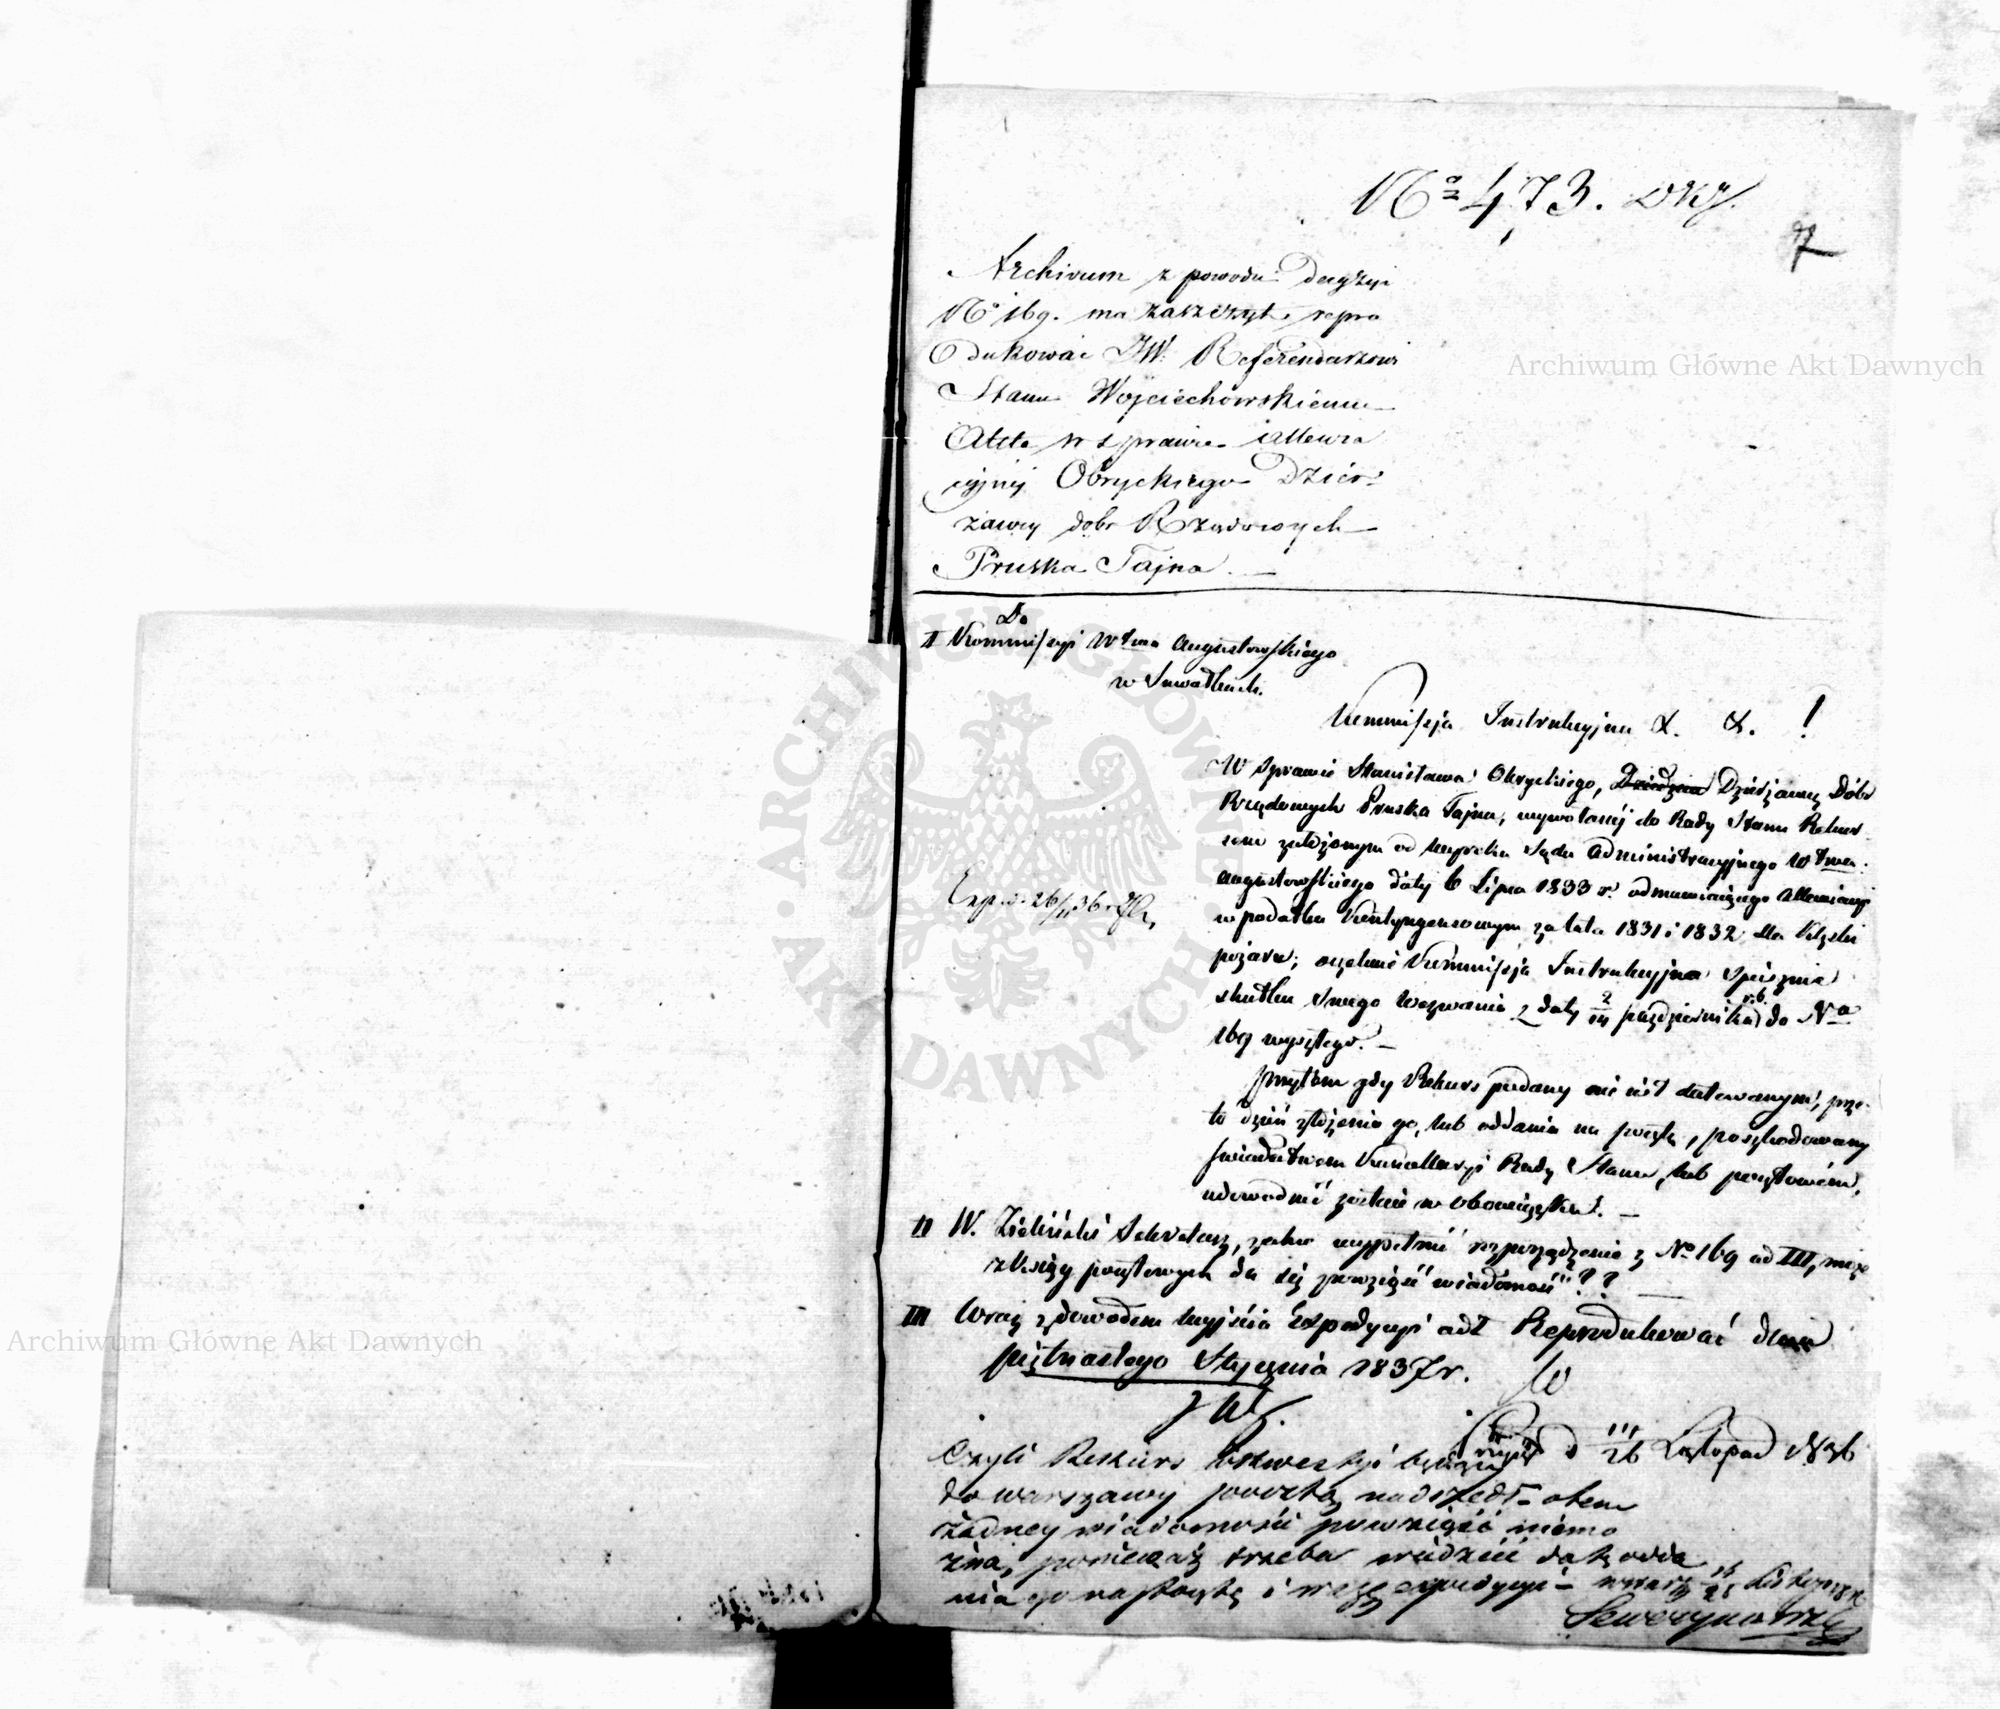 No 473.
Archivum z powodu Decyzyi
No 169. ma zaszczyt repro
dukować JW. Referendarzowi
Stanu Wojciechowskiemu
Akta w sprawie allewia
cyjnej Obryckiego Dzier-
żawcy dobr Rządowych
Pruska Tajna. —
Do
I Kommissyi Wtwa Augustowskiego
w Suwałkach.
Kommissja Instrukcyjna &. &. !
W Sprawie Stanisława Obryckiego, Dzierżawcy Dóbr
Rządowych Pruska Tajna, wywołanej do Rady Stanu Rekur-
sem założonym od wyroku Sądu Administracyjnego Wtwa
Augustowskiego daty 6 Lipca 1833 r. odmawiającego allewiacyi
w podatku Kontyngensowym za lata 1831 i 1832 dla klęski
pożaru; oczekuie Kommissja Instrukcyjna spiesznie
skutku swego wezwania z daty 2/14 października r. b. do No
169 wyszłego. —
Przytem gdy Rekurs podany nie iest datowanym, prze-
to dzień złożenia go, lub oddania na pocztę, poszkodowany
świadectwem Kancellaryi Rady Stanu, lub pocztowém,
udowodnić zostaie w obowiązku. —
II W. Zieliński Sekretarz, zechce wypełnić rozporządzenie z No 169 ad III, może
z Xsiąg pocztowych da się powziąść wiadomość??
III Wraz z dowodem wyjścia Expedycyi ad I Reprodukować dnia
piętnastego Stycznia 1837 r.
26 Listopad 1836
Czyli Rekurs w kwestyi będący
do warszawy pocztą nadszedł o tem
żadney wiadomości powziąść niemo
żna, ponieważ trzeba wiedzieć datę odda
nia go na pocztę i
Archiwum Główne Akt Dawnych
Archiwum Główne Akt Dawnych
ARCHIWUM GŁÓWNE AKT DAWNYCH